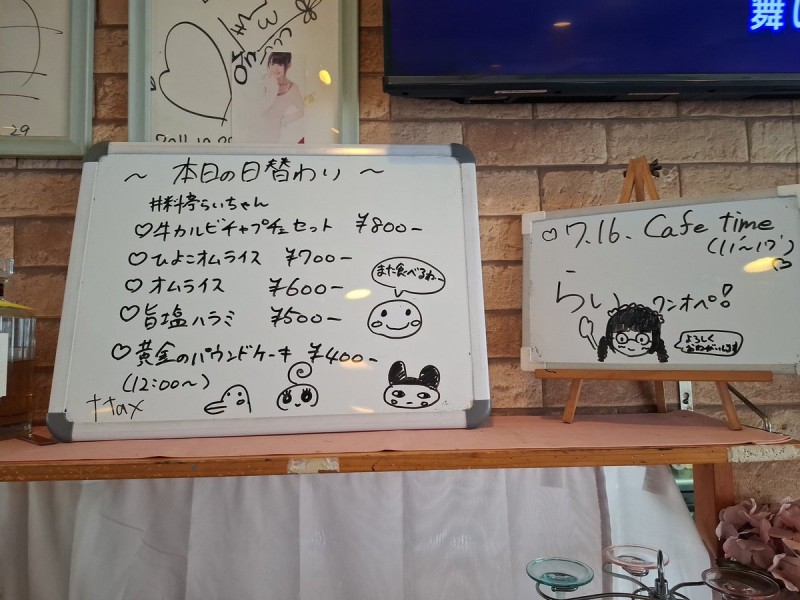 舞い
29
2011.10.
～ 本日の日替わり ～
#料考らいちゃん
♡牛カルビチャプチェセット ¥800-
♡ひよこオムライス ¥700-
♡オムライス ¥600-
♡旨塩ハラミ ¥500-
♡黄金のパウンドケーキ ¥400-
(12:00～)
+tax
また食べるねー
♡7.16. Cafe time
(11'～17')
らい ワンオペ!
よろしく
おねがいします